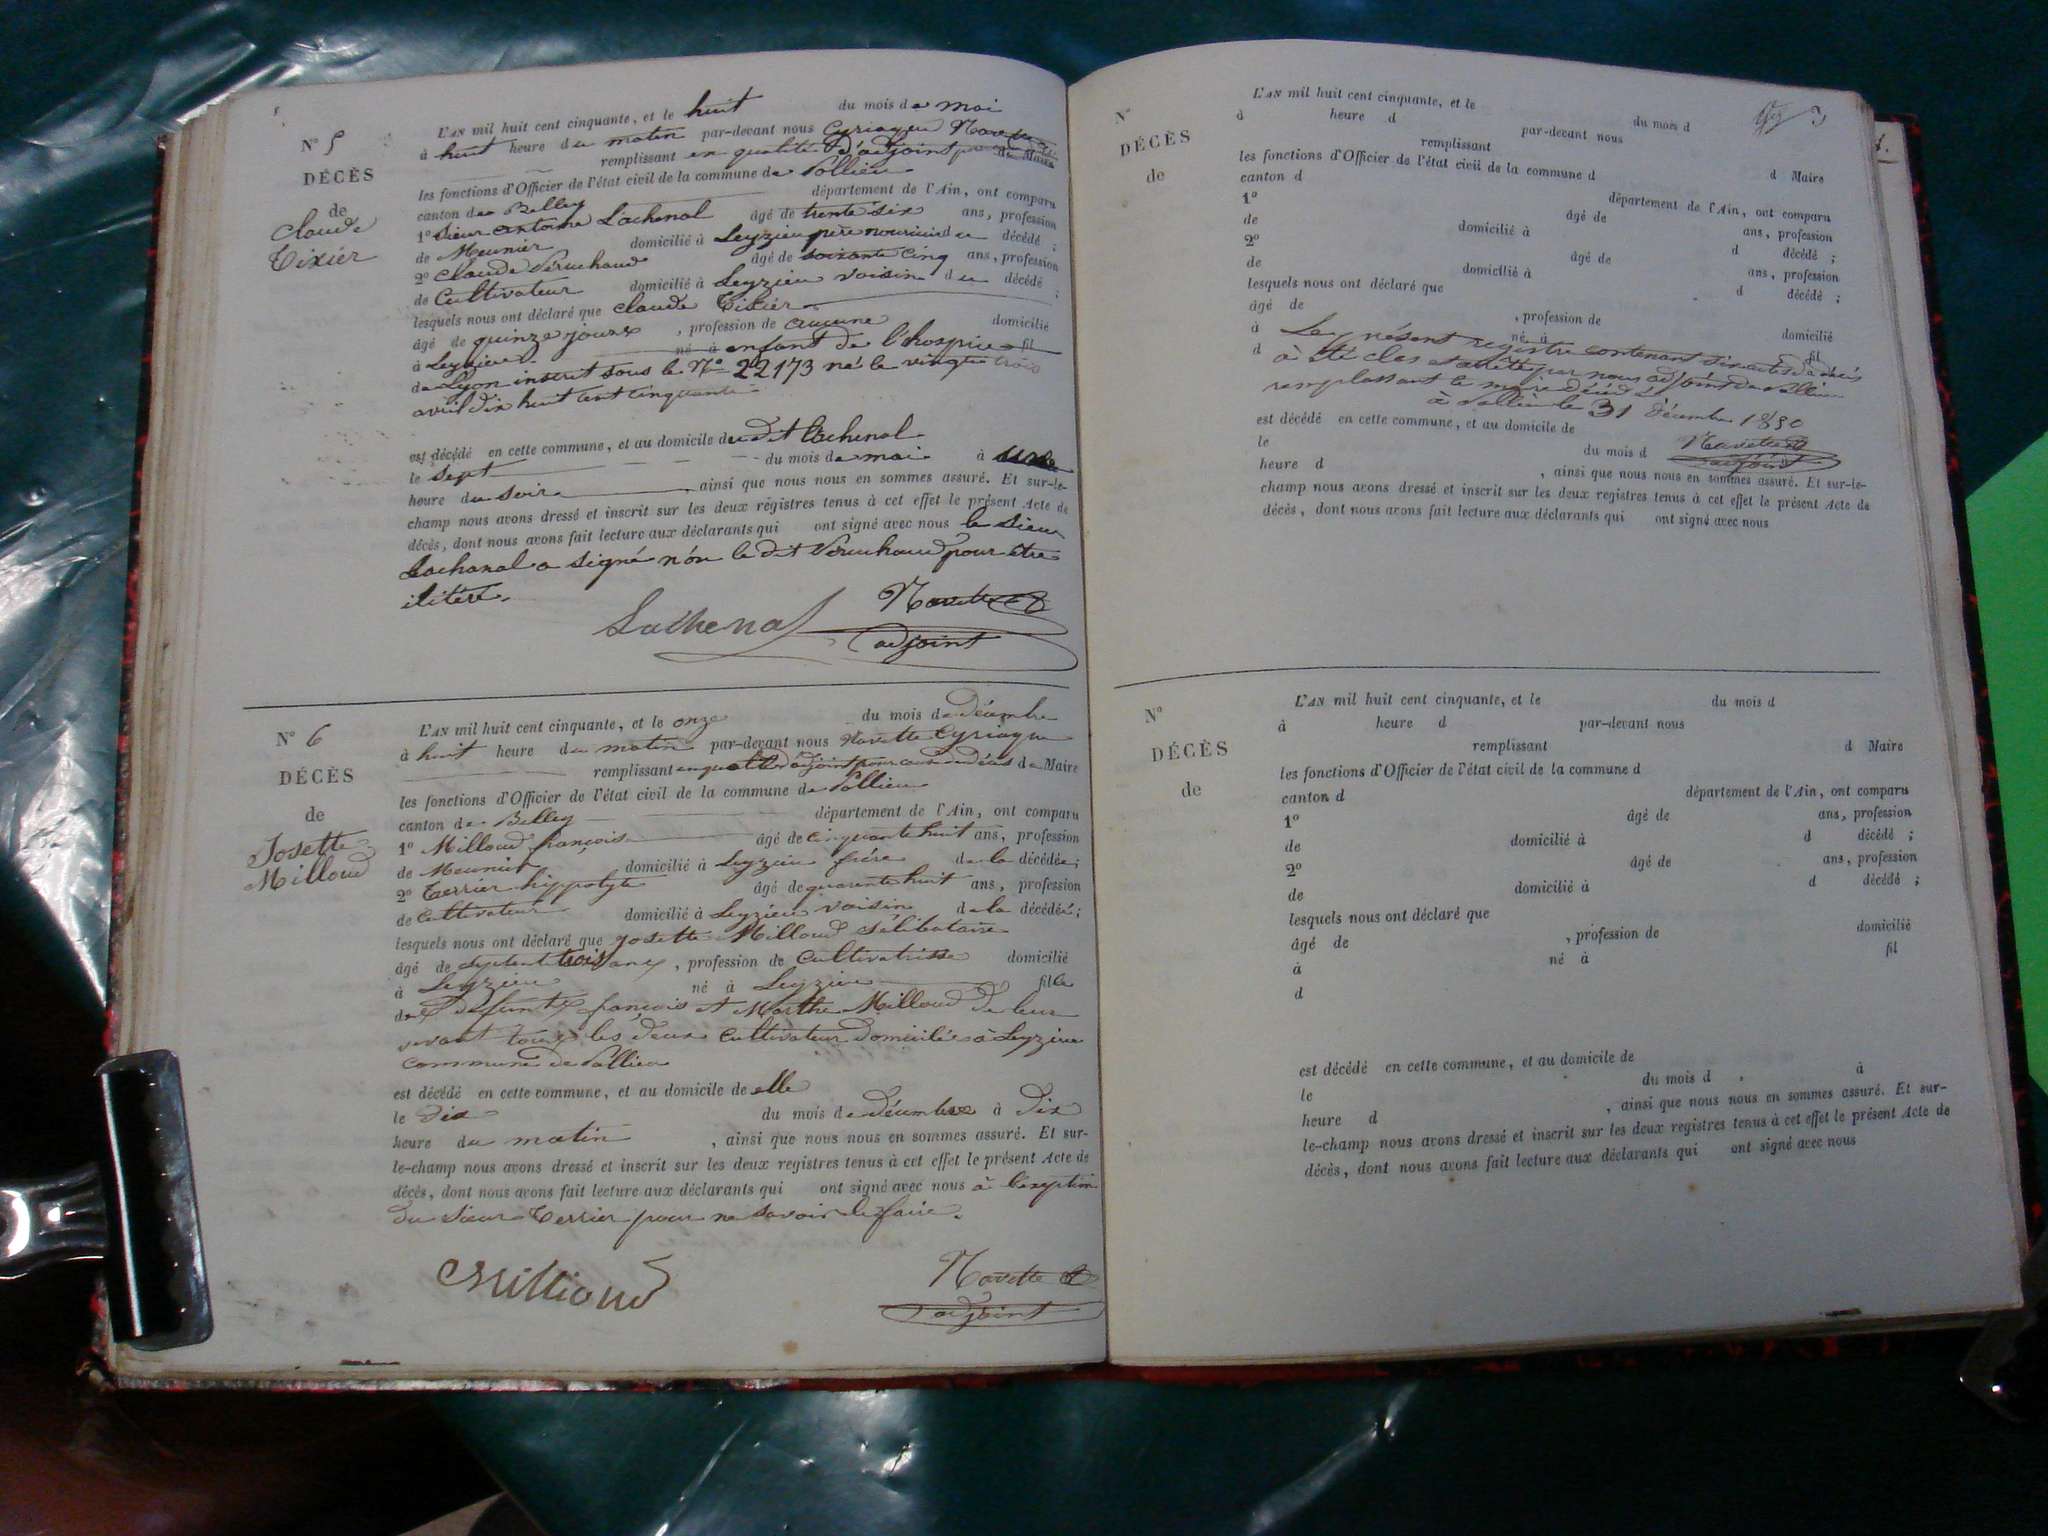 N° 5
DÉCÈS
de
Claude
Tixiér
L'AN mil huit cent cinquante, et le huit du mois de mai
à huit heure du matin par-devant nous Cyriaque Navette
remplissant en qualité d'adjoint de Maire
les fonctions d'Officier de l'état civil de la commune de Pollieu
canton de Belley département de l'Ain, ont comparu
1° Sieur antoine Lachenal âgé de trente six ans, profession
de Meunier domicilié à Leyzieu père nouricier du décédé ;
2° Claude Veruchaud âgé de soixante cinq ans, profession
de Cultivateur domicilié à Leyzieu voisin du décédé ;
lesquels nous ont déclaré que Claude Tixiér
âgé de quinze jours , profession de aucune domicilié
à Leyzieu né à enfant de l'hospice fil
de Lyon inscrit sous le N° 22173 né le vingt trois
avril dix huit cent cinquante
est décédé en cette commune, et au domicile du dit Lachenal
le sept du mois de mai à une
heure du soir , ainsi que nous nous en sommes assuré. Et sur-le-
champ nous avons dressé et inscrit sur les deux registres tenus à cet effet le présent Acte de
décès, dont nous avons fait lecture aux déclarants qui ont signé avec nous le sieur
Lachenal a signé nón le dit Veruchaud pour être
ilitéré.
Lachenal Navette
adjoint
N° 6
DÉCÈS
de
Josette
Milloud
L'AN mil huit cent cinquante, et le onze du mois de décembre
à huit heure du matin par-devant nous Navette Cyriaque
remplissant en qualité d'adjoint pour cause du décès de Maire
les fonctions d'Officier de l'état civil de la commune de Pollieu
canton de Belley département de l'Ain, ont comparu
1° Milloud françois âgé de cinquante huit ans, profession
de Meunier domicilié à Leyzieu frére de la décédée ;
2° Terrier hippolyte âgé de quarente huit ans, profession
de Cultivateur domicilié à Leyzieu voisin de la décédée ;
lesquels nous ont déclaré que Josette Milloud sélibataire
âgé de septente trois ans , profession de Cultivatrisse domicilié
à Leyzieu né à Leyzieu fille
des defunts françois et Marthe Milloud de leur
vivant tous les deux cultivateur domicilés à Leyzieu
commune de Pollieu
est décédé en cette commune, et au domicile de elle
le dix du mois de décembre à dix
heure du matin , ainsi que nous nous en sommes assuré. Et sur-
le-champ nous avons dressé et inscrit sur les deux registres tenus à cet effet le présent Acte de
décès, dont nous avons fait lecture aux déclarants qui ont signé avec nous à l'exeption
du sieur Terrier pour ne savoir le faire.
Millioud Navette
adjoint
N°
DÉCÈS
de
L'AN mil huit cent cinquante, et le du mois d
à heure d par-devant nous
remplissant d Maire
les fonctions d'Officier de l'état civil de la commune d
canton d département de l'Ain, ont comparu
1° âgé de ans, profession
de domicilié à d décédé ;
2° âgé de ans, profession
de domicilié à d décédé ;
lesquels nous ont déclaré que
âgé de , profession de domicilié
à né à fil
d
Le présent registre contenant six actes de décés
à été clos et arrêté par nous adjoint de Pollieu
remplassant le maire décédé
à Pollieu le 31 décembre 1850
est décédé en cette commune, et au domicile de
le du mois d
Navette
adjoint
heure d , ainsi que nous nous en sommes assuré. Et sur-le-
champ nous avons dressé et inscrit sur les deux registres tenus à cet effet le présent Acte de
décès, dont nous avons fait lecture aux déclarants qui ont signé avec nous
N°
DÉCÈS
de
L'AN mil huit cent cinquante, et le du mois d
à heure d par-devant nous
remplissant d Maire
les fonctions d'Officier de l'état civil de la commune d
canton d département de l'Ain, ont comparu
1° âgé de ans, profession
de domicilié à d décédé ;
2° âgé de ans, profession
de domicilié à d décédé ;
lesquels nous ont déclaré que
âgé de , profession de domicilié
à né à fil
d
est décédé en cette commune, et au domicile de
le du mois d à
heure d , ainsi que nous nous en sommes assuré. Et sur-
le-champ nous avons dressé et inscrit sur les deux registres tenus à cet effet le présent Acte de
décès, dont nous avons fait lecture aux déclarants qui ont signé avec nous